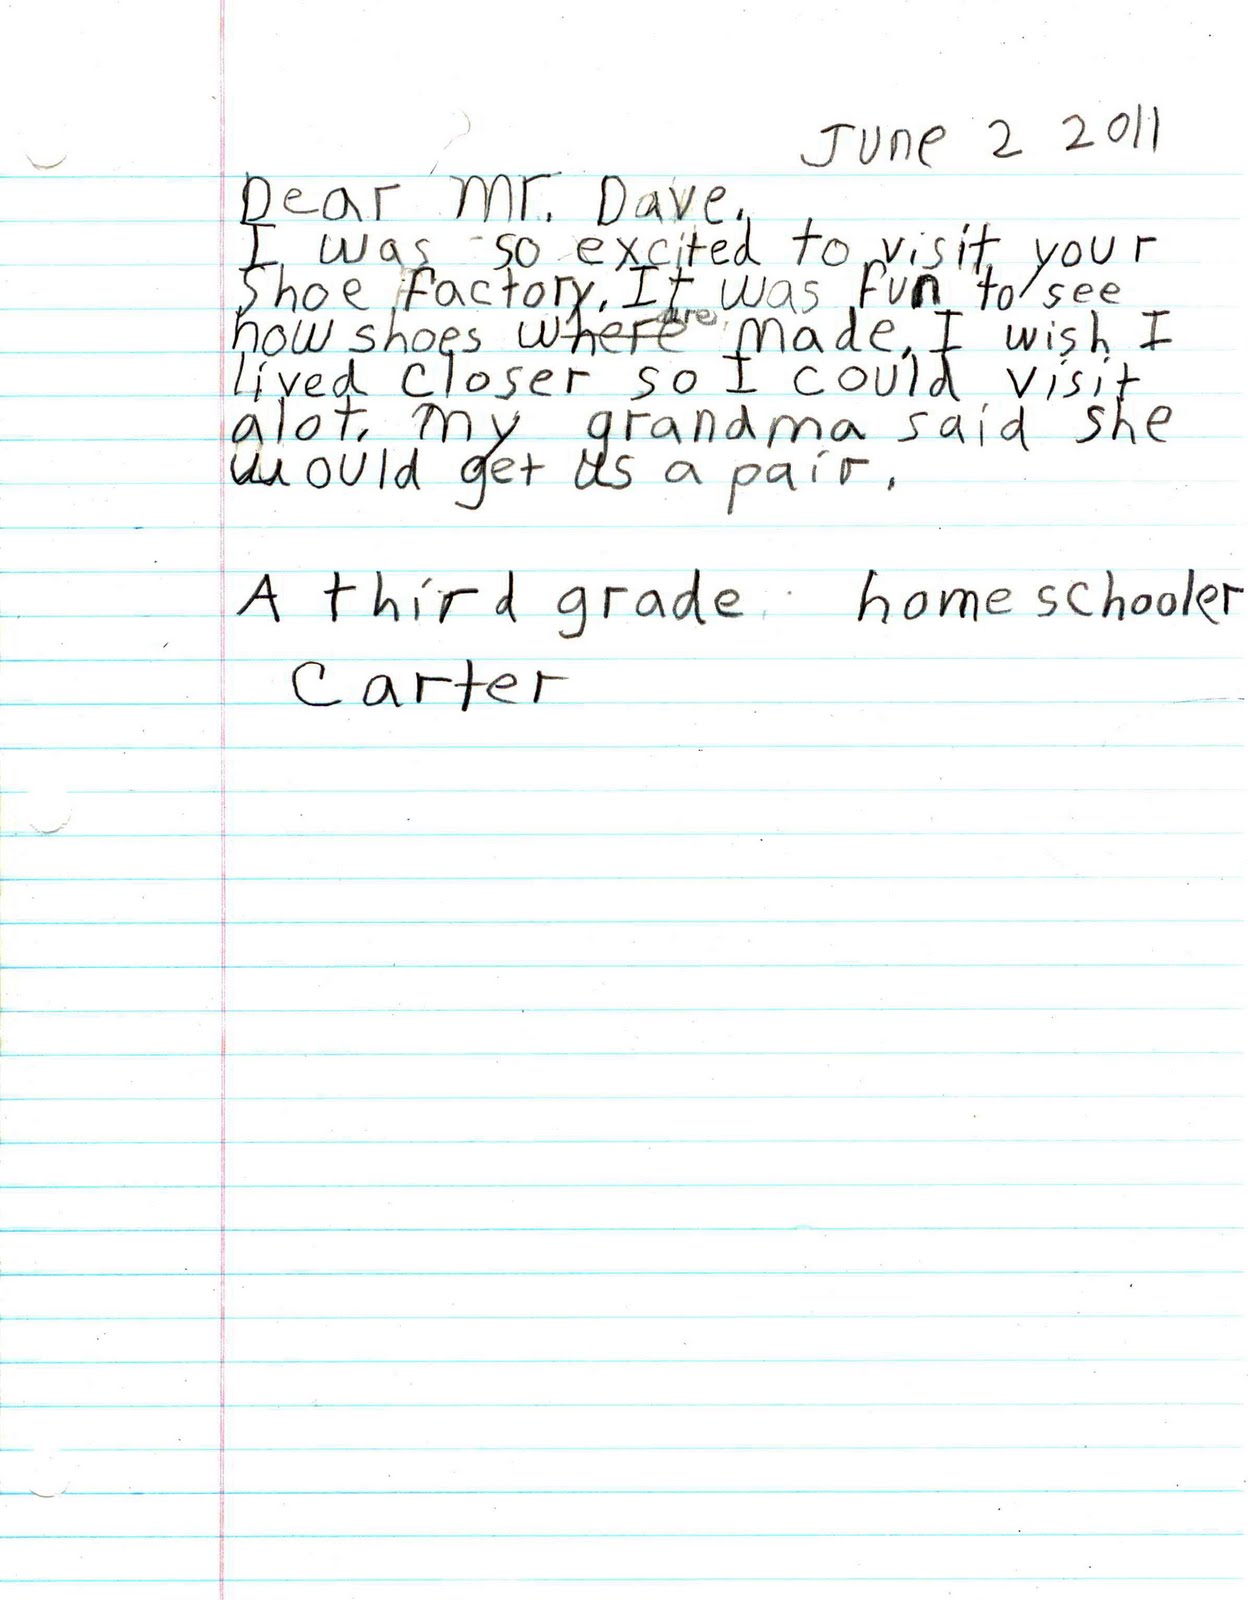 June 2 2011
Dear Mr. Dave.
I was so excited to visit your
Shoe factory. It was fun to see
how shoes where are made. I wish I
lived closer so I could visit
alot. My grandma said she
would get us a pair.
A third grade homeschooler
Carter